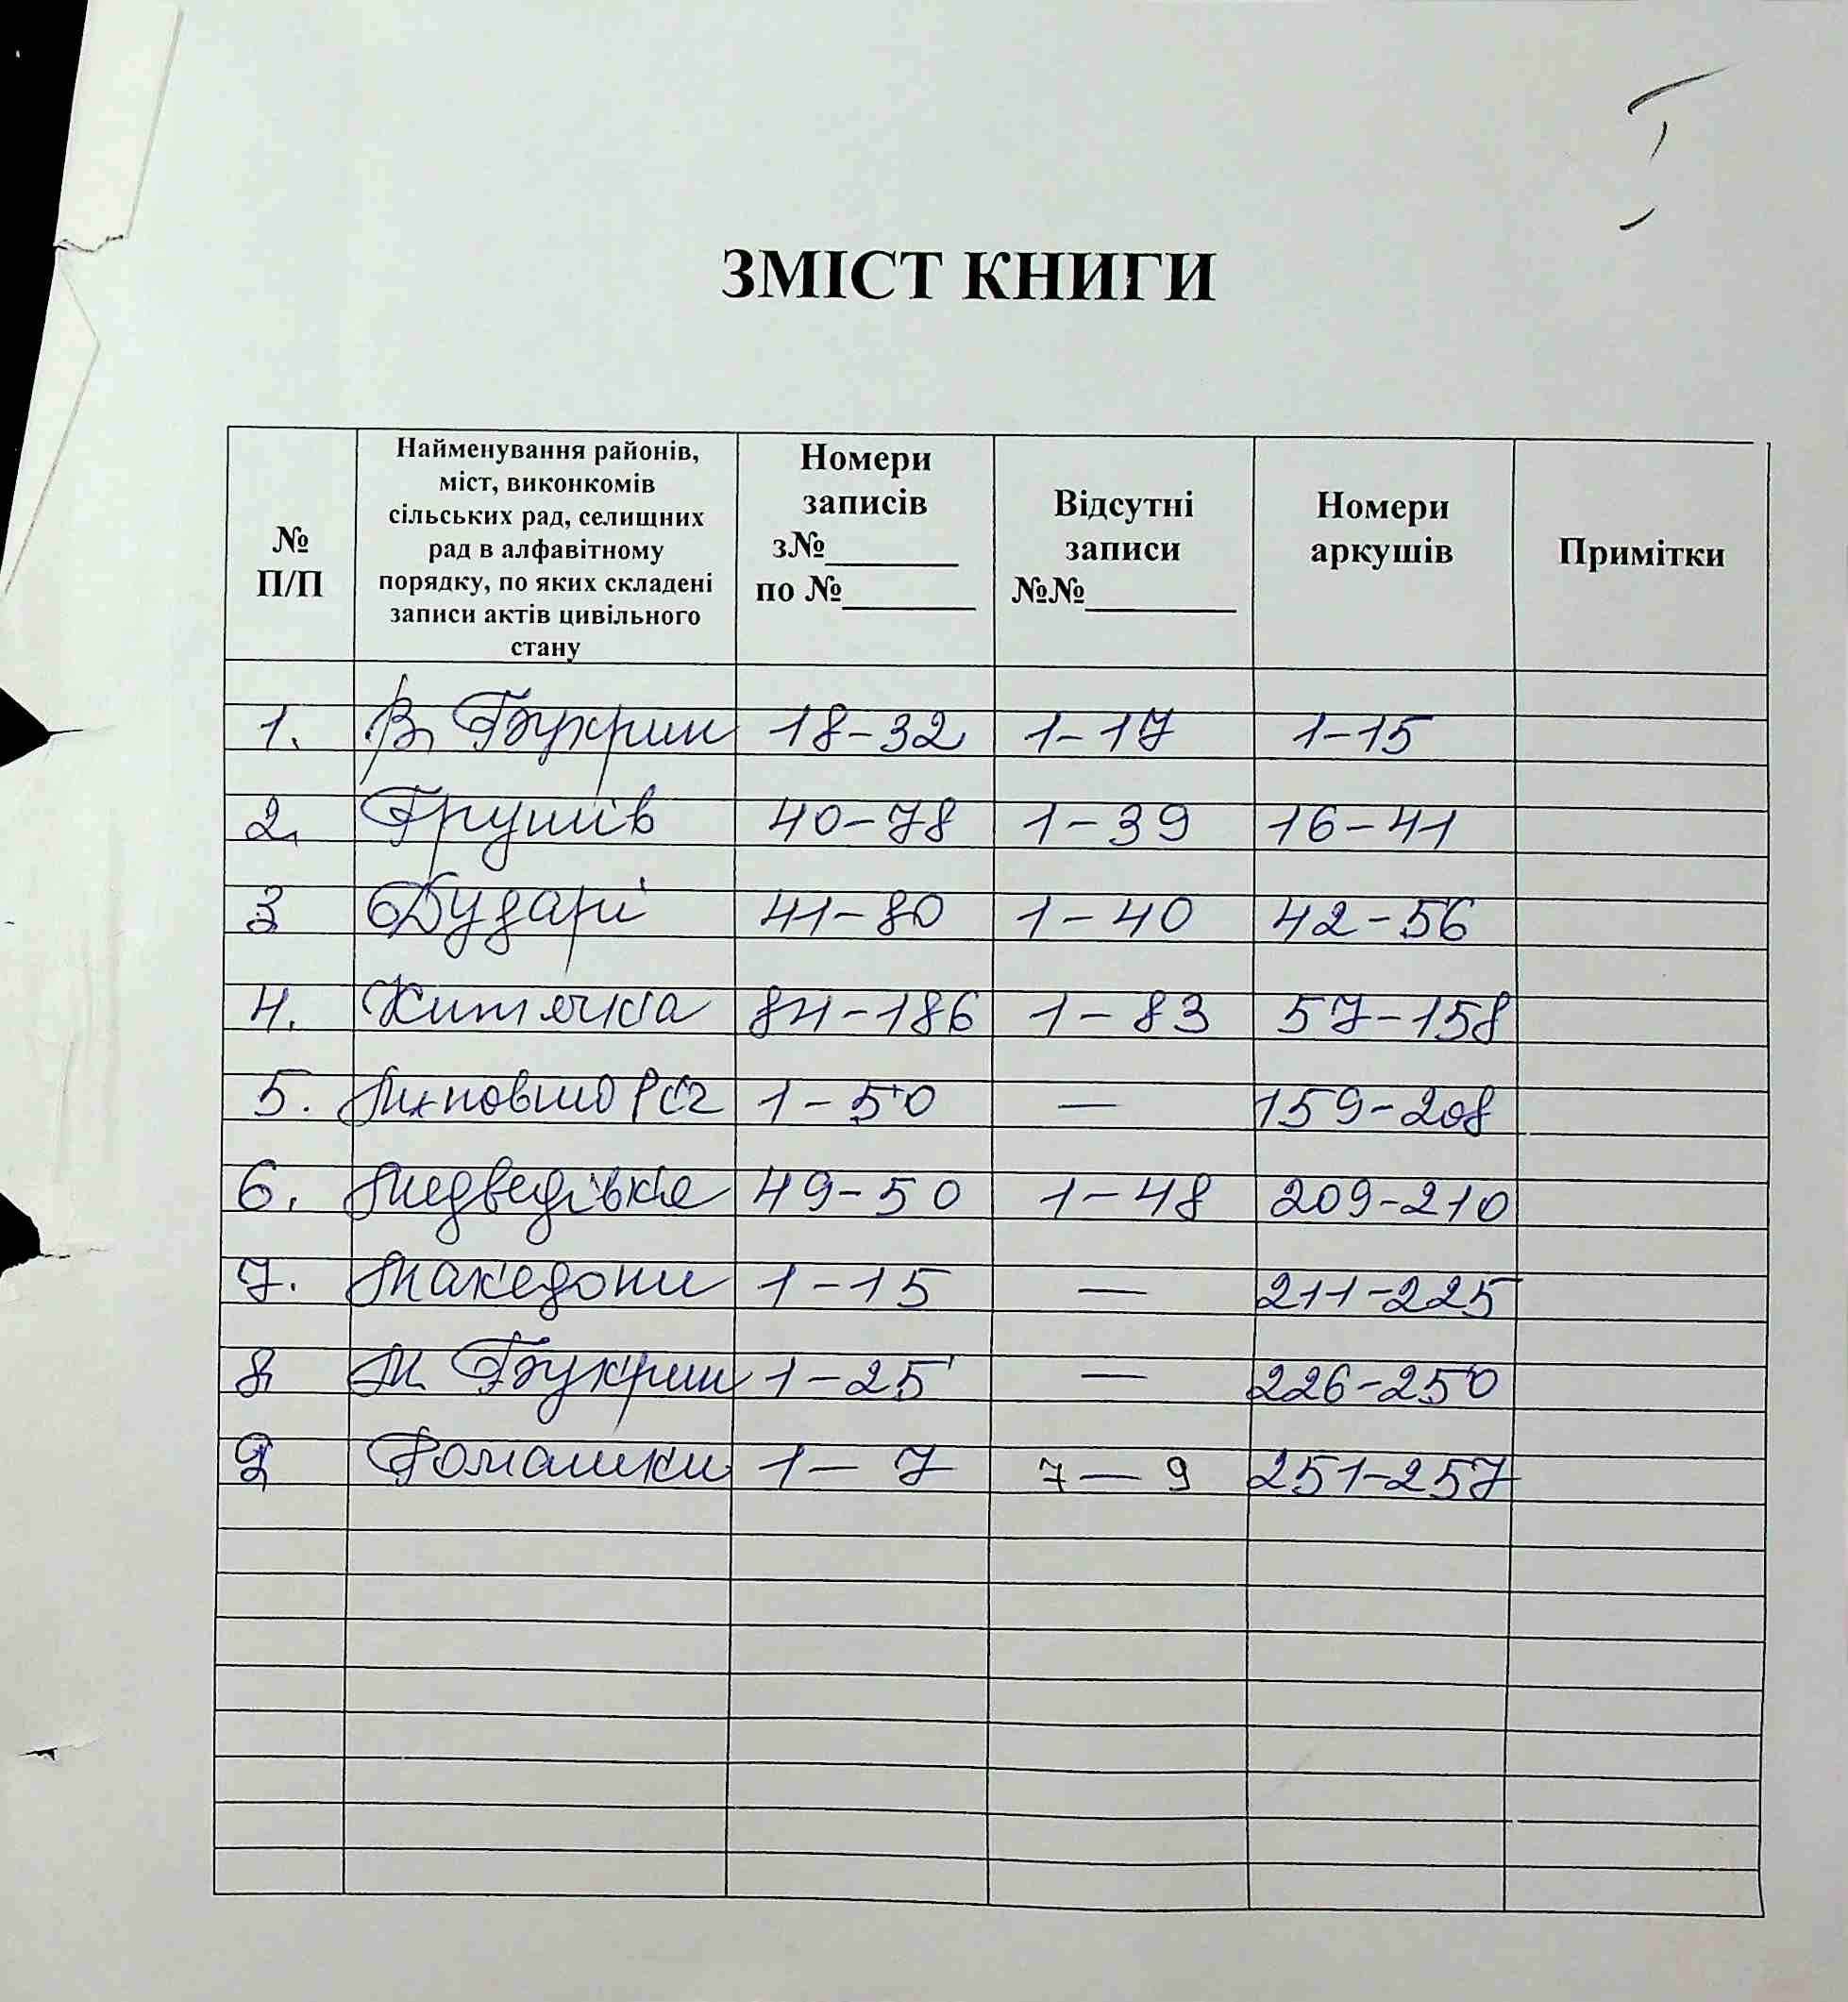 ЗМІСТ КНИГИ
№ П/П
Найменування районів,
міст, виконкомів
сільських рад, селищних
рад в алфавітному
порядку, по яких складені
записи актів цивільного
стану
Номери
записів
з№________
по №________
Відсутні
записи
№№_________
Номери
аркушів
Примітки
1. В. Букрин 18-32 1-17 1-15
2. Грушів 40-78 1-39 16-41
3 Дударі 41-80 1-40 42-56
4. 84-186 1-83 57-158
5. 1-50 — 159-208
6. Медведівка 49-50 1-48 209-210
7. Македони 1-15 — 211-225
8 М Букрин 1-25 — 226-250
9 Ромашки 1-7 7-9 251-257